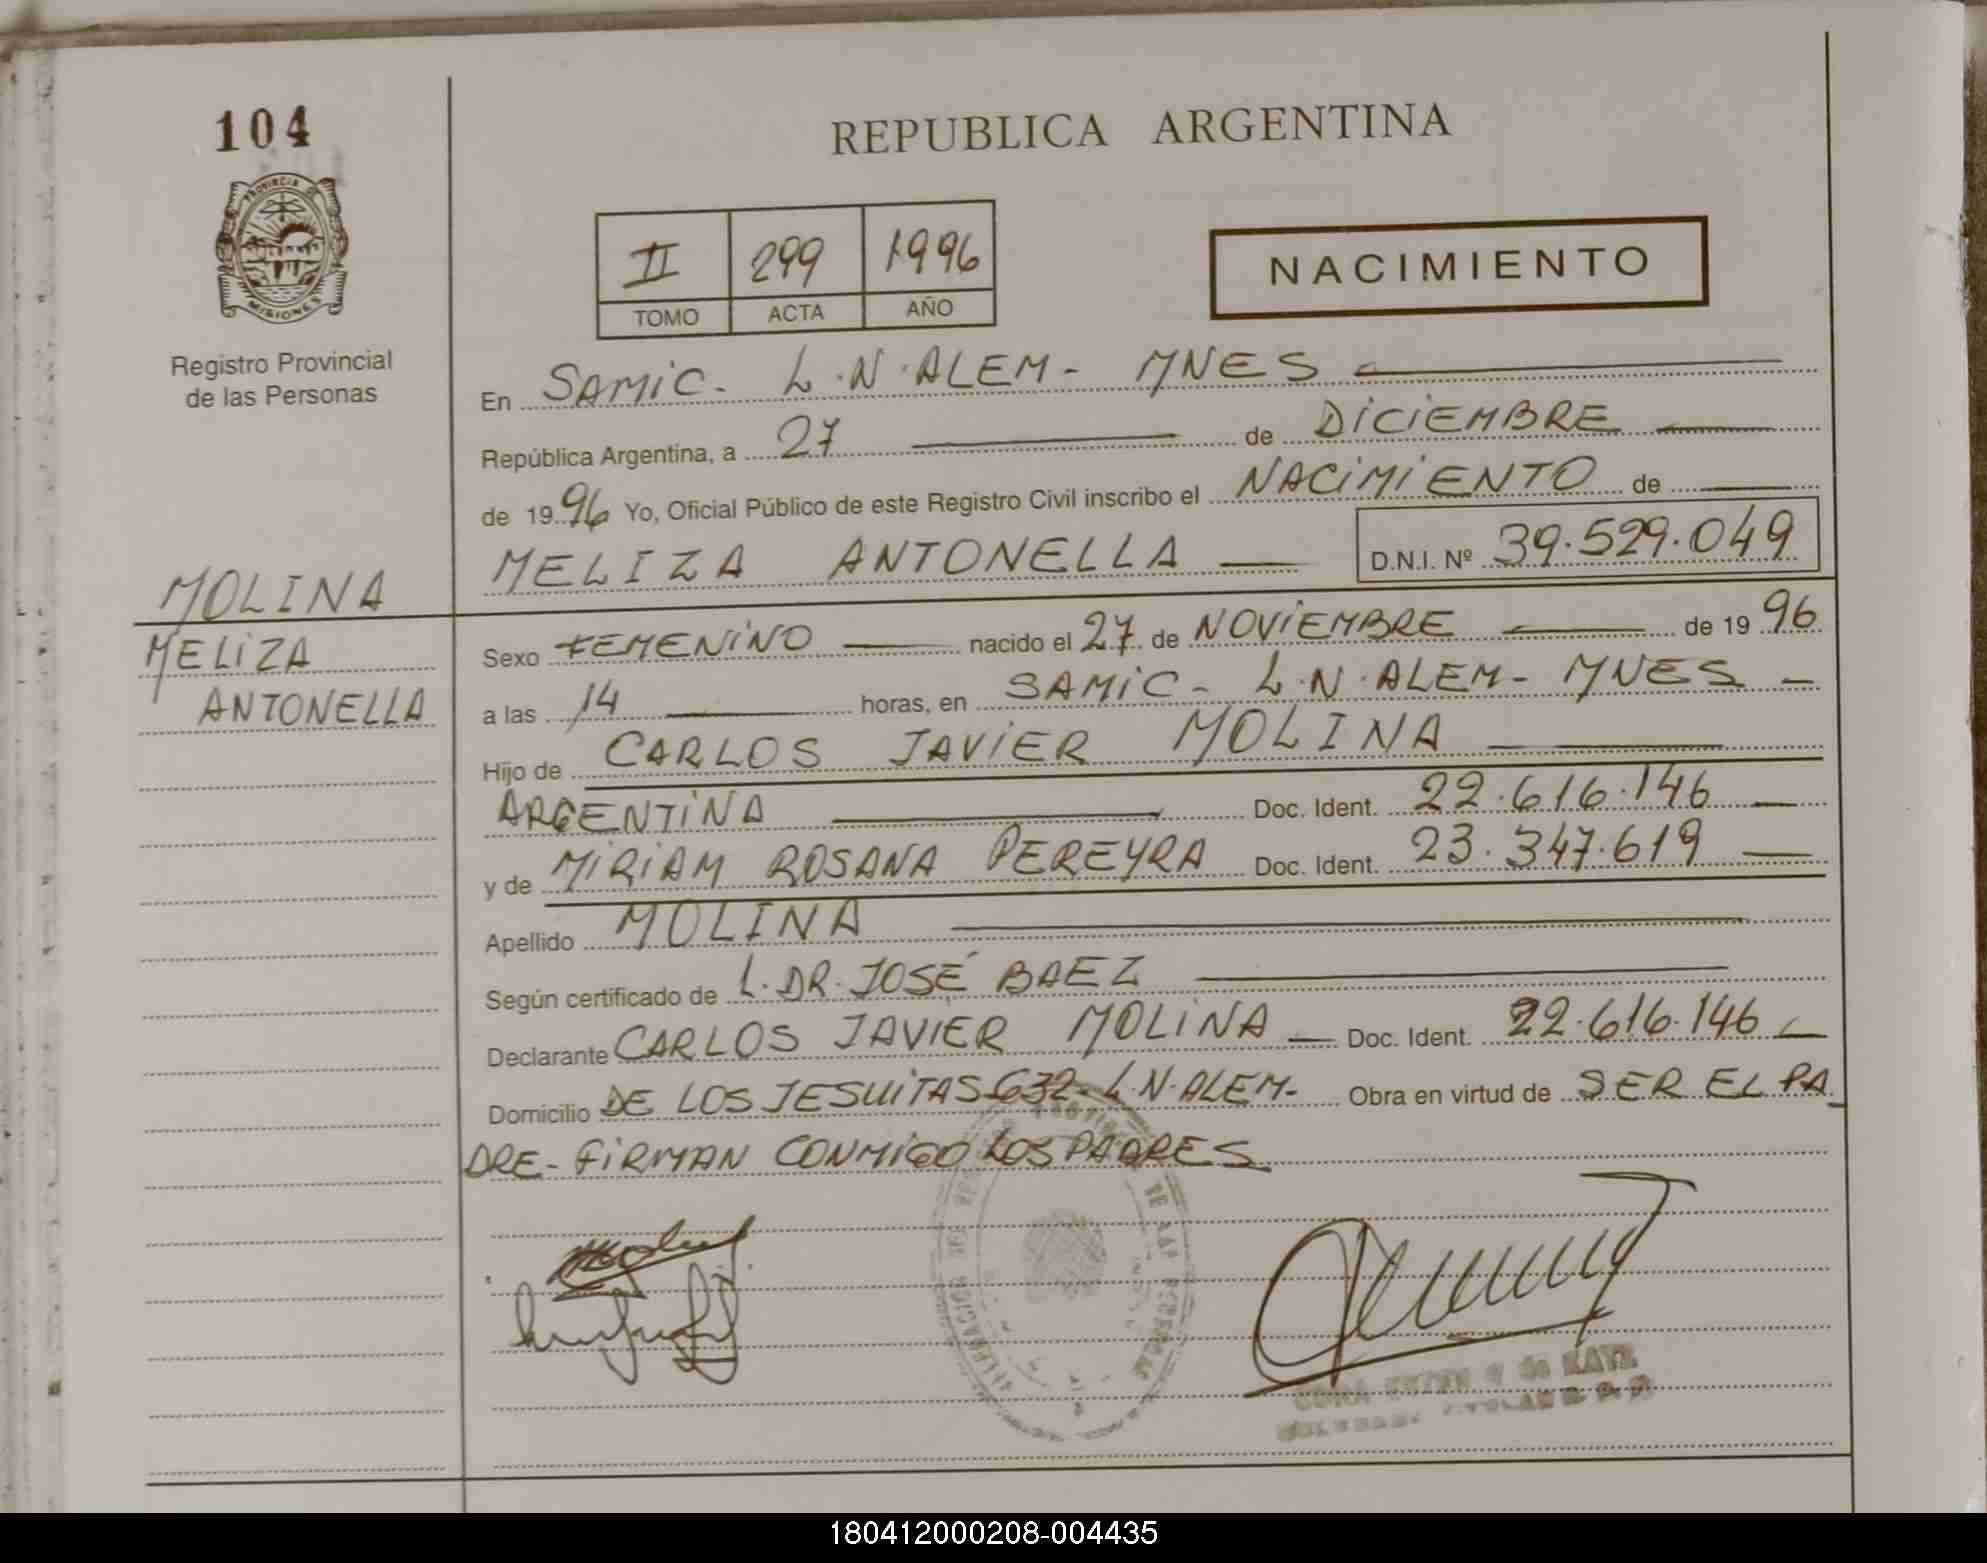 104
REPUBLICA ARGENTINA
PROVINCIA DE
MISIONES
Registro Provincial
de las Personas
II 299 1996
TOMO ACTA AÑO
NACIMIENTO
En SAMIC - L.N. ALEM - MNES
República Argentina, a 27 de DICIEMBRE
de 1996 Yo, Oficial Público de este Registro Civil inscribo el NACIMIENTO de
MELIZA ANTONELLA D.N.I. Nº 39.529.049
MOLINA
MELIZA
ANTONELLA
Sexo FEMENINO nacido el 27 de NOVIEMBRE de 1996
a las 14 horas, en SAMIC - L.N. ALEM - MNES -
Hijo de CARLOS JAVIER MOLINA
ARGENTINA Doc. Ident. 22.616.146
y de MIRIAM ROSANA PEREYRA Doc. Ident. 23.347.619
Apellido MOLINA
Según certificado de L. DR. JOSÉ BAEZ
Declarante CARLOS JAVIER MOLINA Doc. Ident. 22.616.146
Domicilio DE LOS JESUITAS 632 - L.N. ALEM - Obra en virtud de SER EL PA
DRE - FIRMAN CONMIGO LOS PADRES
de KAYE
180412000208-004435